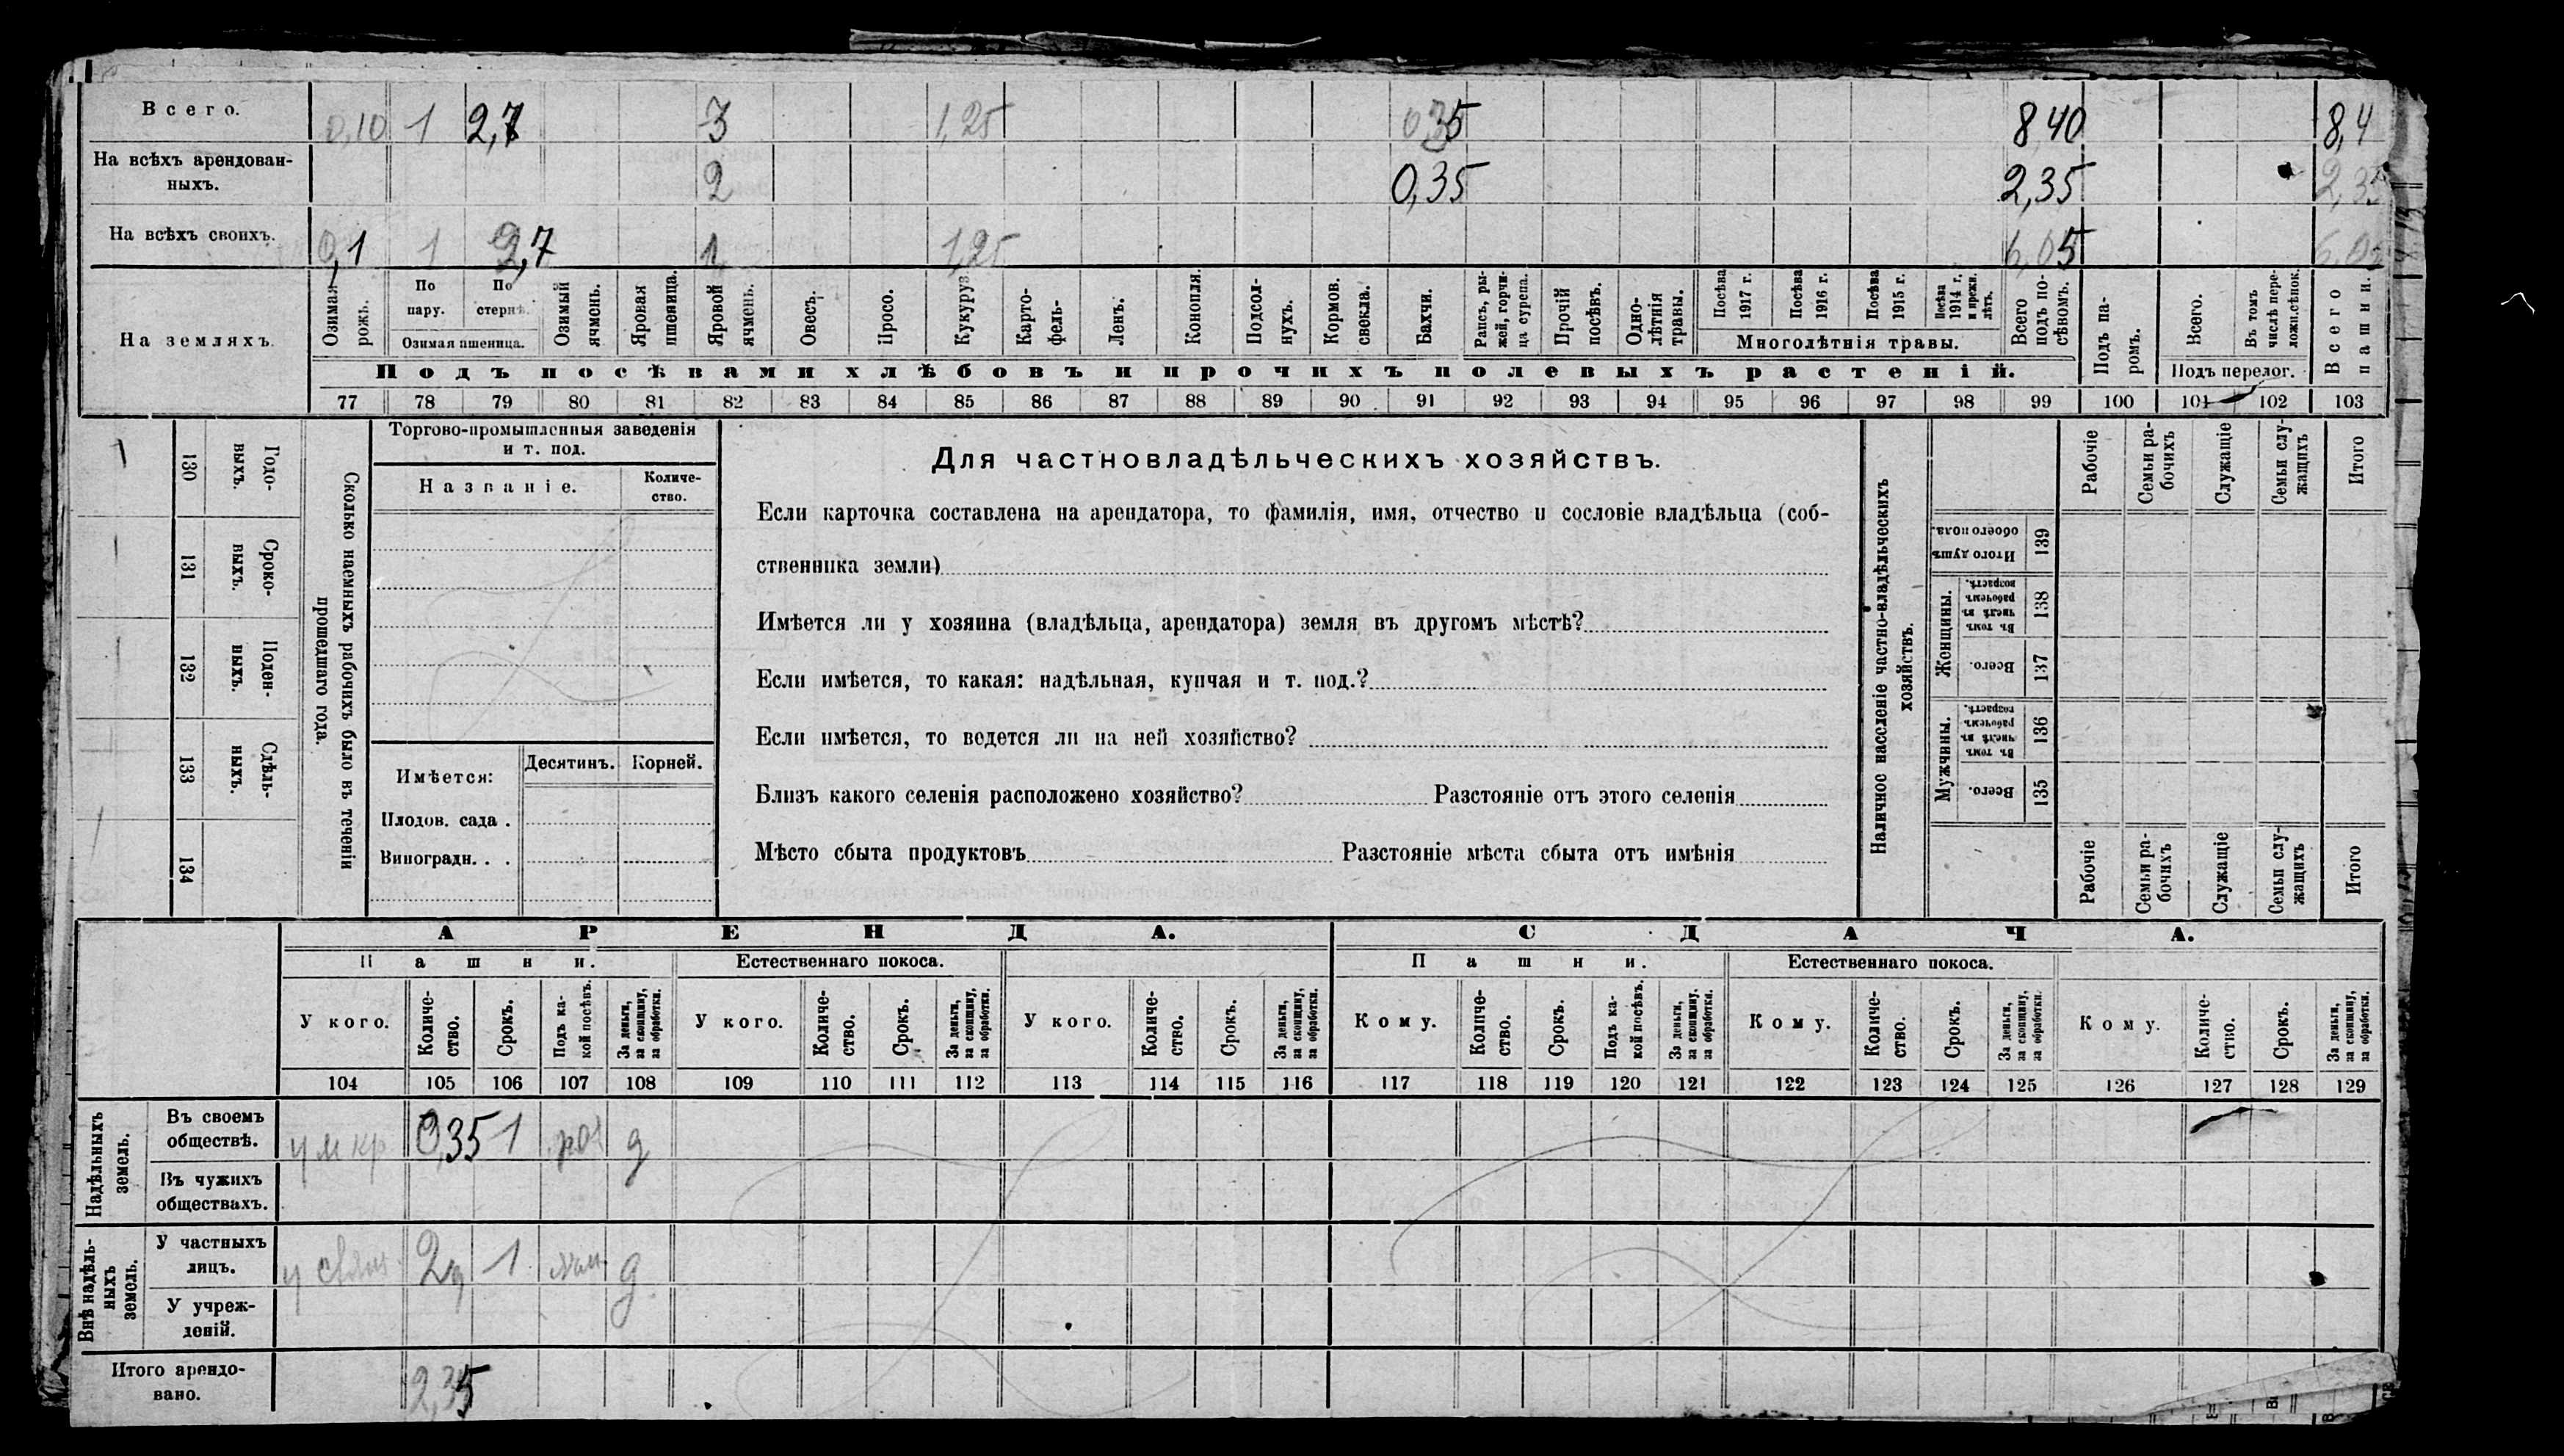 Всего. 0,10 1 2,7 3 1,25 0,35 8,40 8,4
На всѣхъ арендован-
ныхъ. 2 0,35 2,35 2,35
На всѣхъ своихъ. 0,1 1 2,7 1 1,25 6,05 6,05
На земляхъ.
Озимая рожь.
По пару.
По стернѣ.
Озимая пшеница.
Озимый ячмень.
Яровая пшеница.
Яровой ячмень.
Овесъ.
Просо.
Кукуруз.
Карто-
фель.
Ленъ.
Конопля.
Подсол-
нухъ.
Кормов.
свекла.
Бахчи.
Рапсъ, ры-
жей, горчи-
ца сурепа.
Прочій
посѣвъ.
Одно-
лѣтнія
травы.
Посѣва
1917 г.
Посѣва
1916 г.
Посѣва
1915 г.
Посѣва
1914 г.
и прежн.
лѣтъ.
Многолѣтнія травы.
Всего
подъ по-
сѣвомъ.
Подъ па-
ромъ.
Всего.
Въ томъ
числѣ пере-
ложн. сѣнок.
Подъ перелог.
Всего
пашни.
Подъ посѣвами хлѣбовъ и прочихъ полевыхъ растеній.
77 78 79 80 81 82 83 84 85 86 87 88 89 90 91 92 93 94 95 96 97 98 99 100 101 102 103
1
130
Годо-
выхъ.
131
Сроко-
выхъ.
132
Поден-
ныхъ.
133
Сдѣль-
ныхъ.
134
Сколько наемныхъ рабочихъ было въ теченіи
прошедшаго года.
Торгово-промышленныя заведенія
и т. под.
Названіе.
Количе-
ство.
Имѣется:
Десятинъ.
Корней.
Плодов. сада .
Виноградн. . .
Для частновладѣльческихъ хозяйствъ.
Если карточка составлена на арендатора, то фамилія, имя, отчество и сословіе владѣльца (соб-
ственника земли)
Имѣется ли у хозяина (владѣльца, арендатора) земля въ другомъ мѣстѣ?
Если имѣется, то какая: надѣльная, купчая и т. под.?
Если имѣется, то ведется ли на ней хозяйство?
Близъ какого селенія расположено хозяйство? Разстояніе отъ этого селенія
Мѣсто сбыта продуктовъ Разстояніе мѣста сбыта отъ имѣнія
Наличное населеніе частно-владѣльческихъ
хозяйствъ.
Рабочіе
Семьи ра-
бочихъ
Служащіе
Семьи слу-
жащихъ
Итого
Итого душъ
обоего пола.
139
Женщины.
Въ томъ
числѣ въ
рабочемъ
возрастѣ.
138
Всего.
137
Мужчины.
Въ томъ
числѣ въ
рабочемъ
возрастѣ.
136
Всего.
135
Рабочіе
Семьи ра-
бочихъ
Служащіе
Семьи слу-
жащихъ
Итого
АРЕНДА. СДАЧА.
Пашни. Естественнаго покоса. Пашни. Естественнаго покоса.
У кого.
Количе-
ство.
Срокъ.
Подъ ка-
кой посѣвъ.
За деньги,
за скопщину,
за обработки.
У кого.
Количе-
ство.
Срокъ.
За деньги,
за скопщину,
за обработки.
У кого.
Количе-
ство.
Срокъ.
За деньги,
за скопщину,
за обработки.
Кому.
Количе-
ство.
Срокъ.
Подъ ка-
кой посѣвъ.
За деньги,
за скопщину,
за обработки.
Кому.
Количе-
ство.
Срокъ.
За деньги,
за скопщину,
за обработки.
Кому.
Количе-
ство.
Срокъ.
За деньги,
за скопщину,
за обработки.
104 105 106 107 108 109 110 111 112 113 114 115 116 117 118 119 120 121 122 123 124 125 126 127 128 129
Надѣльныхъ
земель.
Въ своемъ
обществѣ. у м кр 0,35 1 д
Въ чужихъ
обществахъ.
Внѣ надѣль-
ныхъ
земель.
У частныхъ
лицъ. у 2 1 д
У учреж-
деній.
Итого арендо-
вано. 2,35